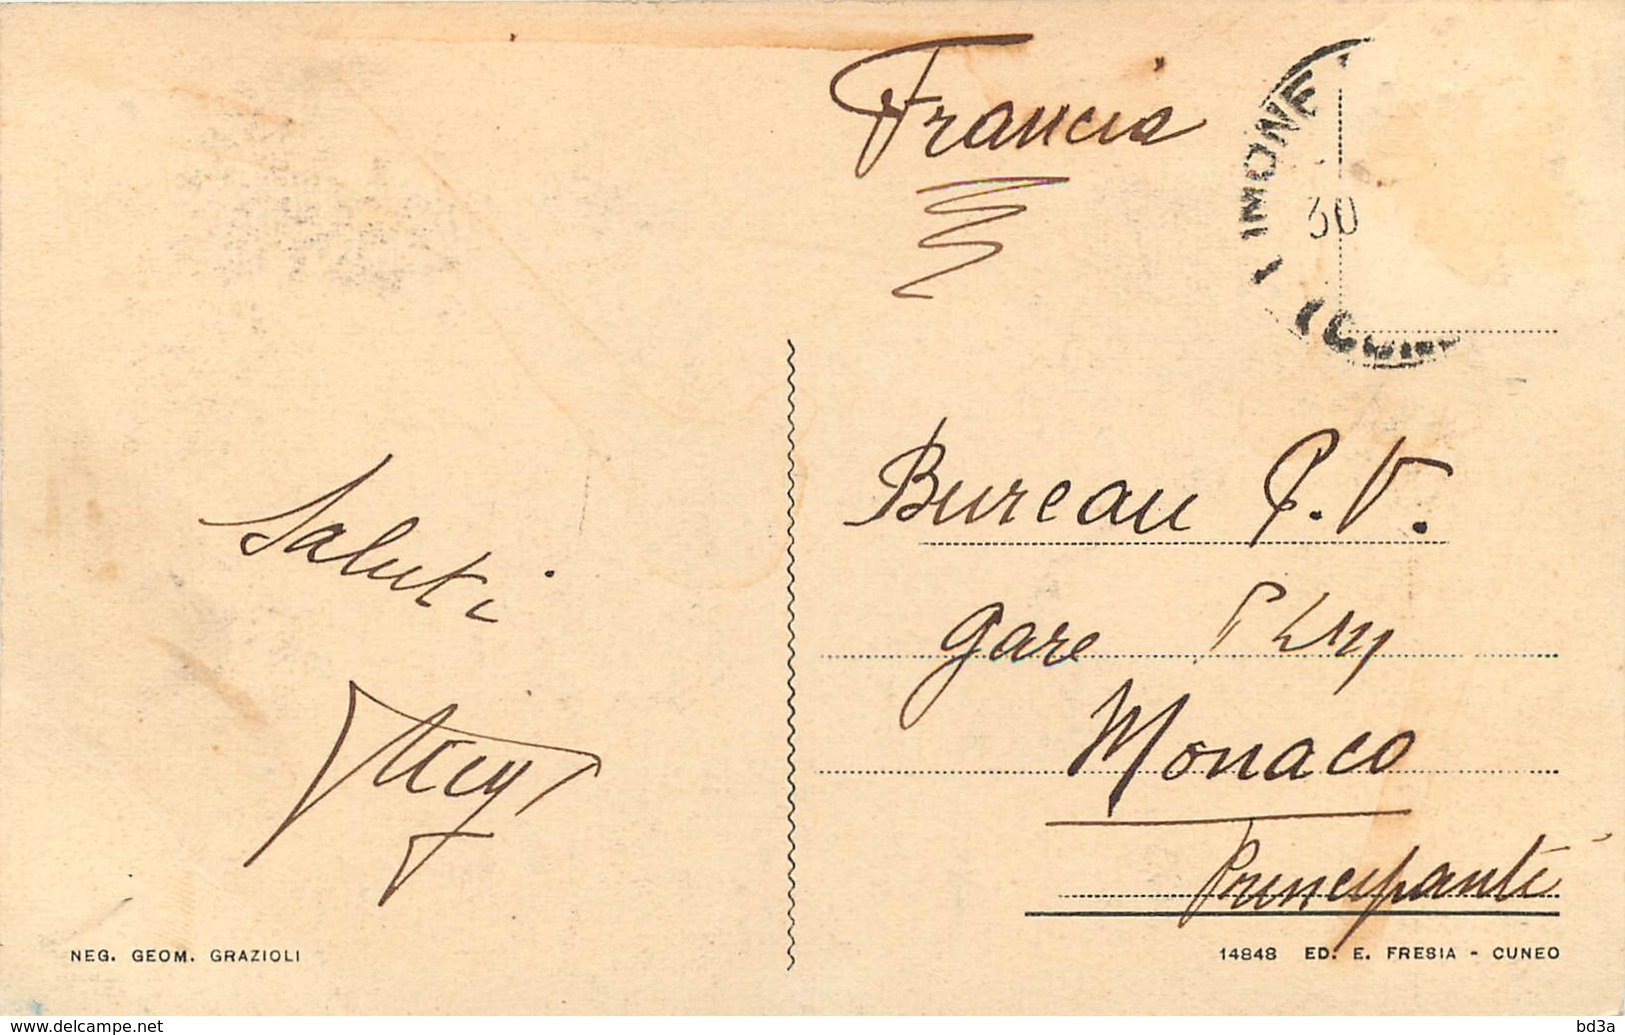 Francia
IMONE
30
(CUN
Saluti
Bureau P.V.
gare PLM
Monaco
Principauté
NEG. GEOM. GRAZIOLI
14848 ED. E. FRESIA - CUNEO
www.delcampe.net
bd3a